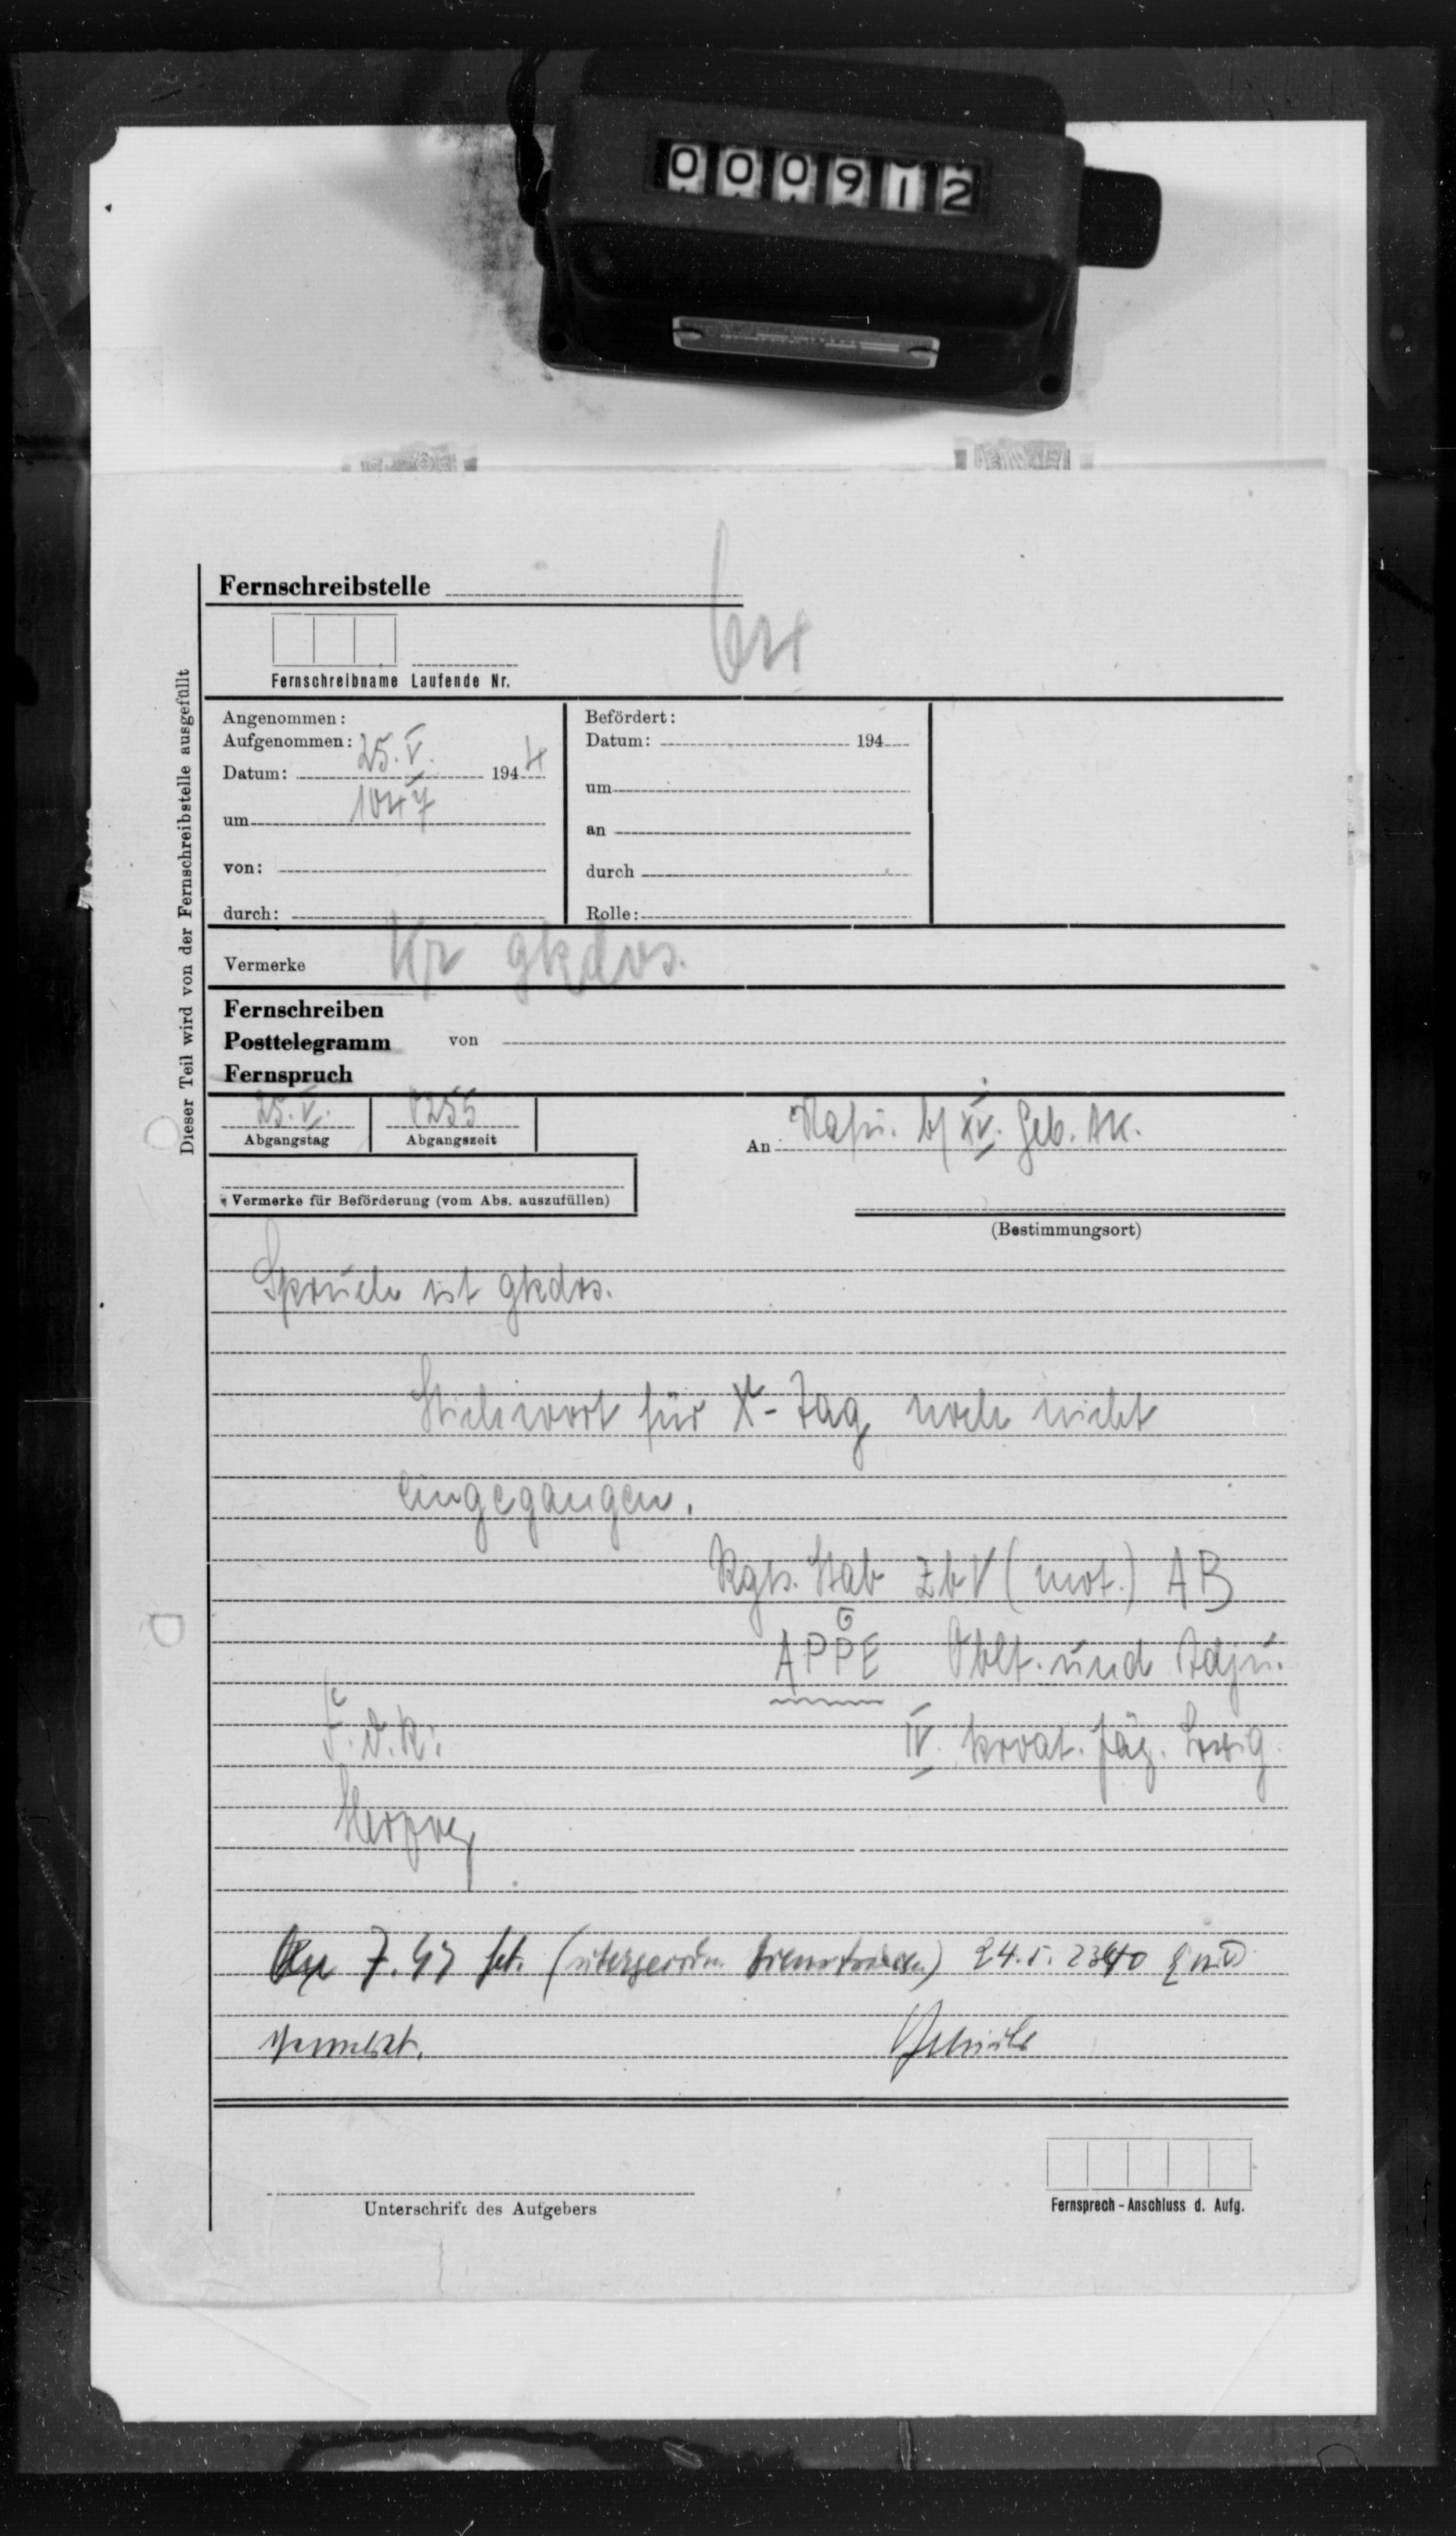 000912
Fernschreibstelle
Fernschreibname Laufende Nr.
Dieser Teil wird von der Fernschreibstelle ausgefüllt
Angenommen:
Aufgenommen:
Datum: 25.V. 1944
um 1047
von:
durch:
Befördert:
Datum: 194
um
an
durch
Rolle:
Vermerke Kr gkdos.
Fernschreiben
Posttelegramm von
Fernspruch
25.V.
Abgangstag
0255
Abgangszeit
An XV. Geb. AK.
Vermerke für Beförderung (vom Abs. auszufüllen)
(Bestimmungsort)
Spruch ist gkdos.
Stichwort für X-Tag noch nicht
eingegangen.
Rgts. Stab ZbV (mot.) AB
APPE Oblt. und Adju.
F.d.R.
IV. kroat. Jäg. Brig.
24.5. 2340
Unterschrift des Aufgebers
Fernsprech-Anschluss d. Aufg.